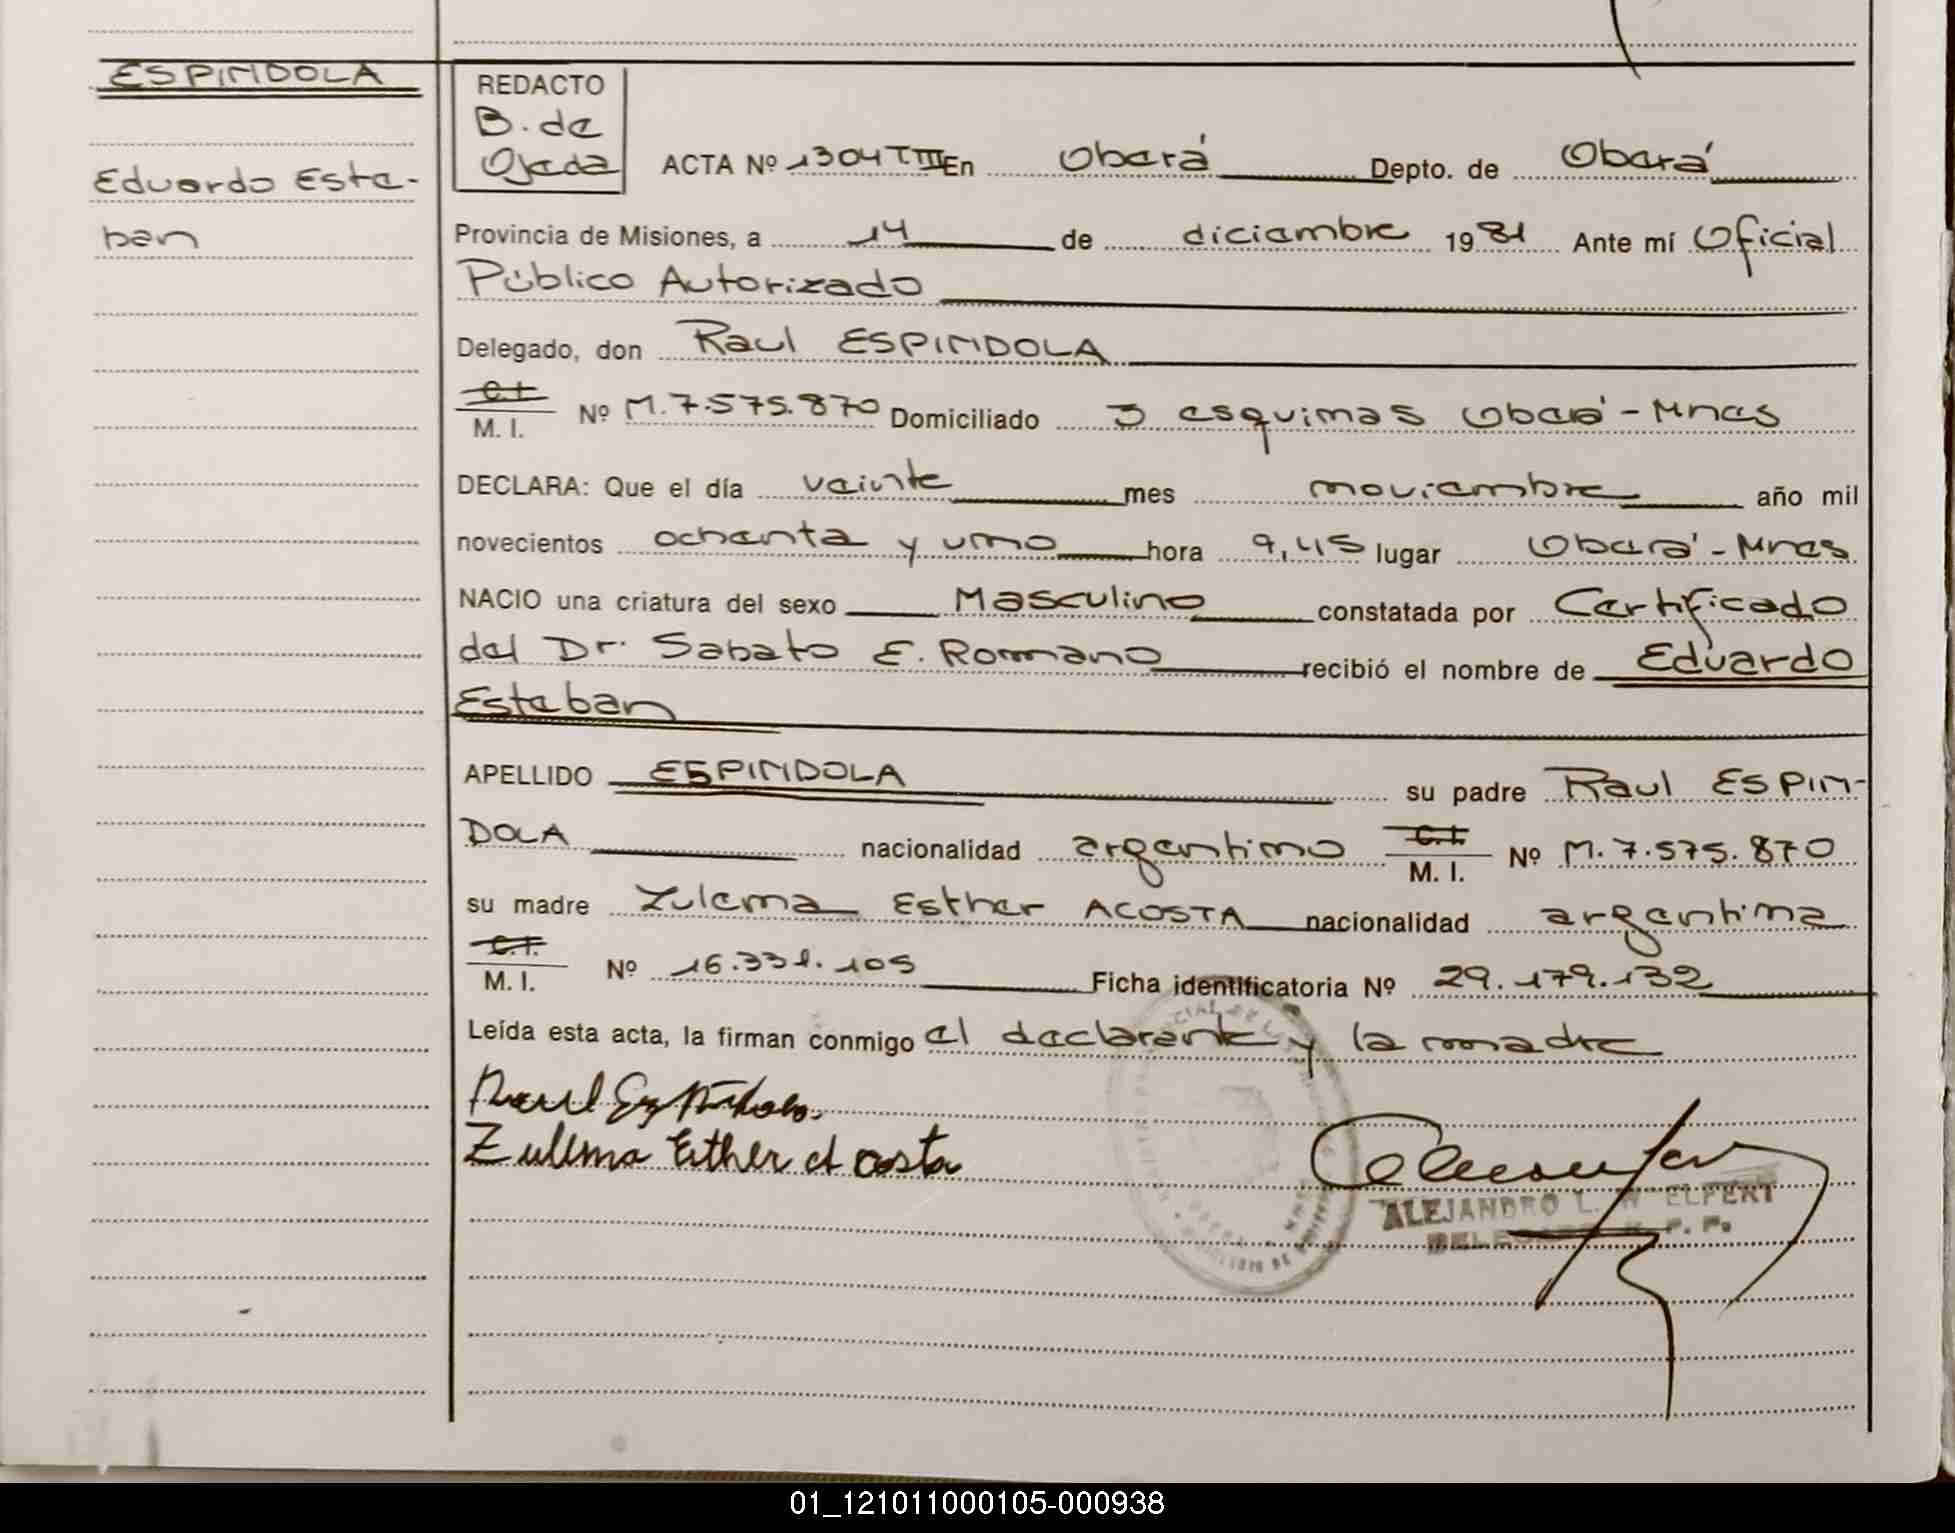 ESPINDOLA
Eduardo Este-
ban
REDACTO
B. de
Ojeda
ACTA Nº 1304 TIII En Oberá Depto. de Oberá
Provincia de Misiones, a 14 de diciembre 1981 Ante mí Oficial
Público Autorizado
Delegado, don Raul ESPINDOLA
C.I.
M. I. Nº M.7.575.870 Domiciliado 3 esquinas Oberá - Mnes
DECLARA: Que el día veinte mes noviembre año mil
novecientos ochenta y uno hora 9,45 lugar Oberá - Mnes
NACIO una criatura del sexo Masculino constatada por Certificado
del Dr. Sabato E. Romano recibió el nombre de Eduardo
Esteban
APELLIDO ESPINDOLA su padre Raul ESPIN-
DOLA nacionalidad argentino C.I. M. I. Nº M.7.575.870
su madre Zulema Esther ACOSTA nacionalidad argentina
C.I.
M. I. Nº 16.331.105 Ficha identificatoria Nº 29.179.132
Leída esta acta, la firman conmigo el declarante y la madre
Raul Espindola
Zulema Esther Acosta
ALEJANDRO L. WELFERT
01_121011000105-000938